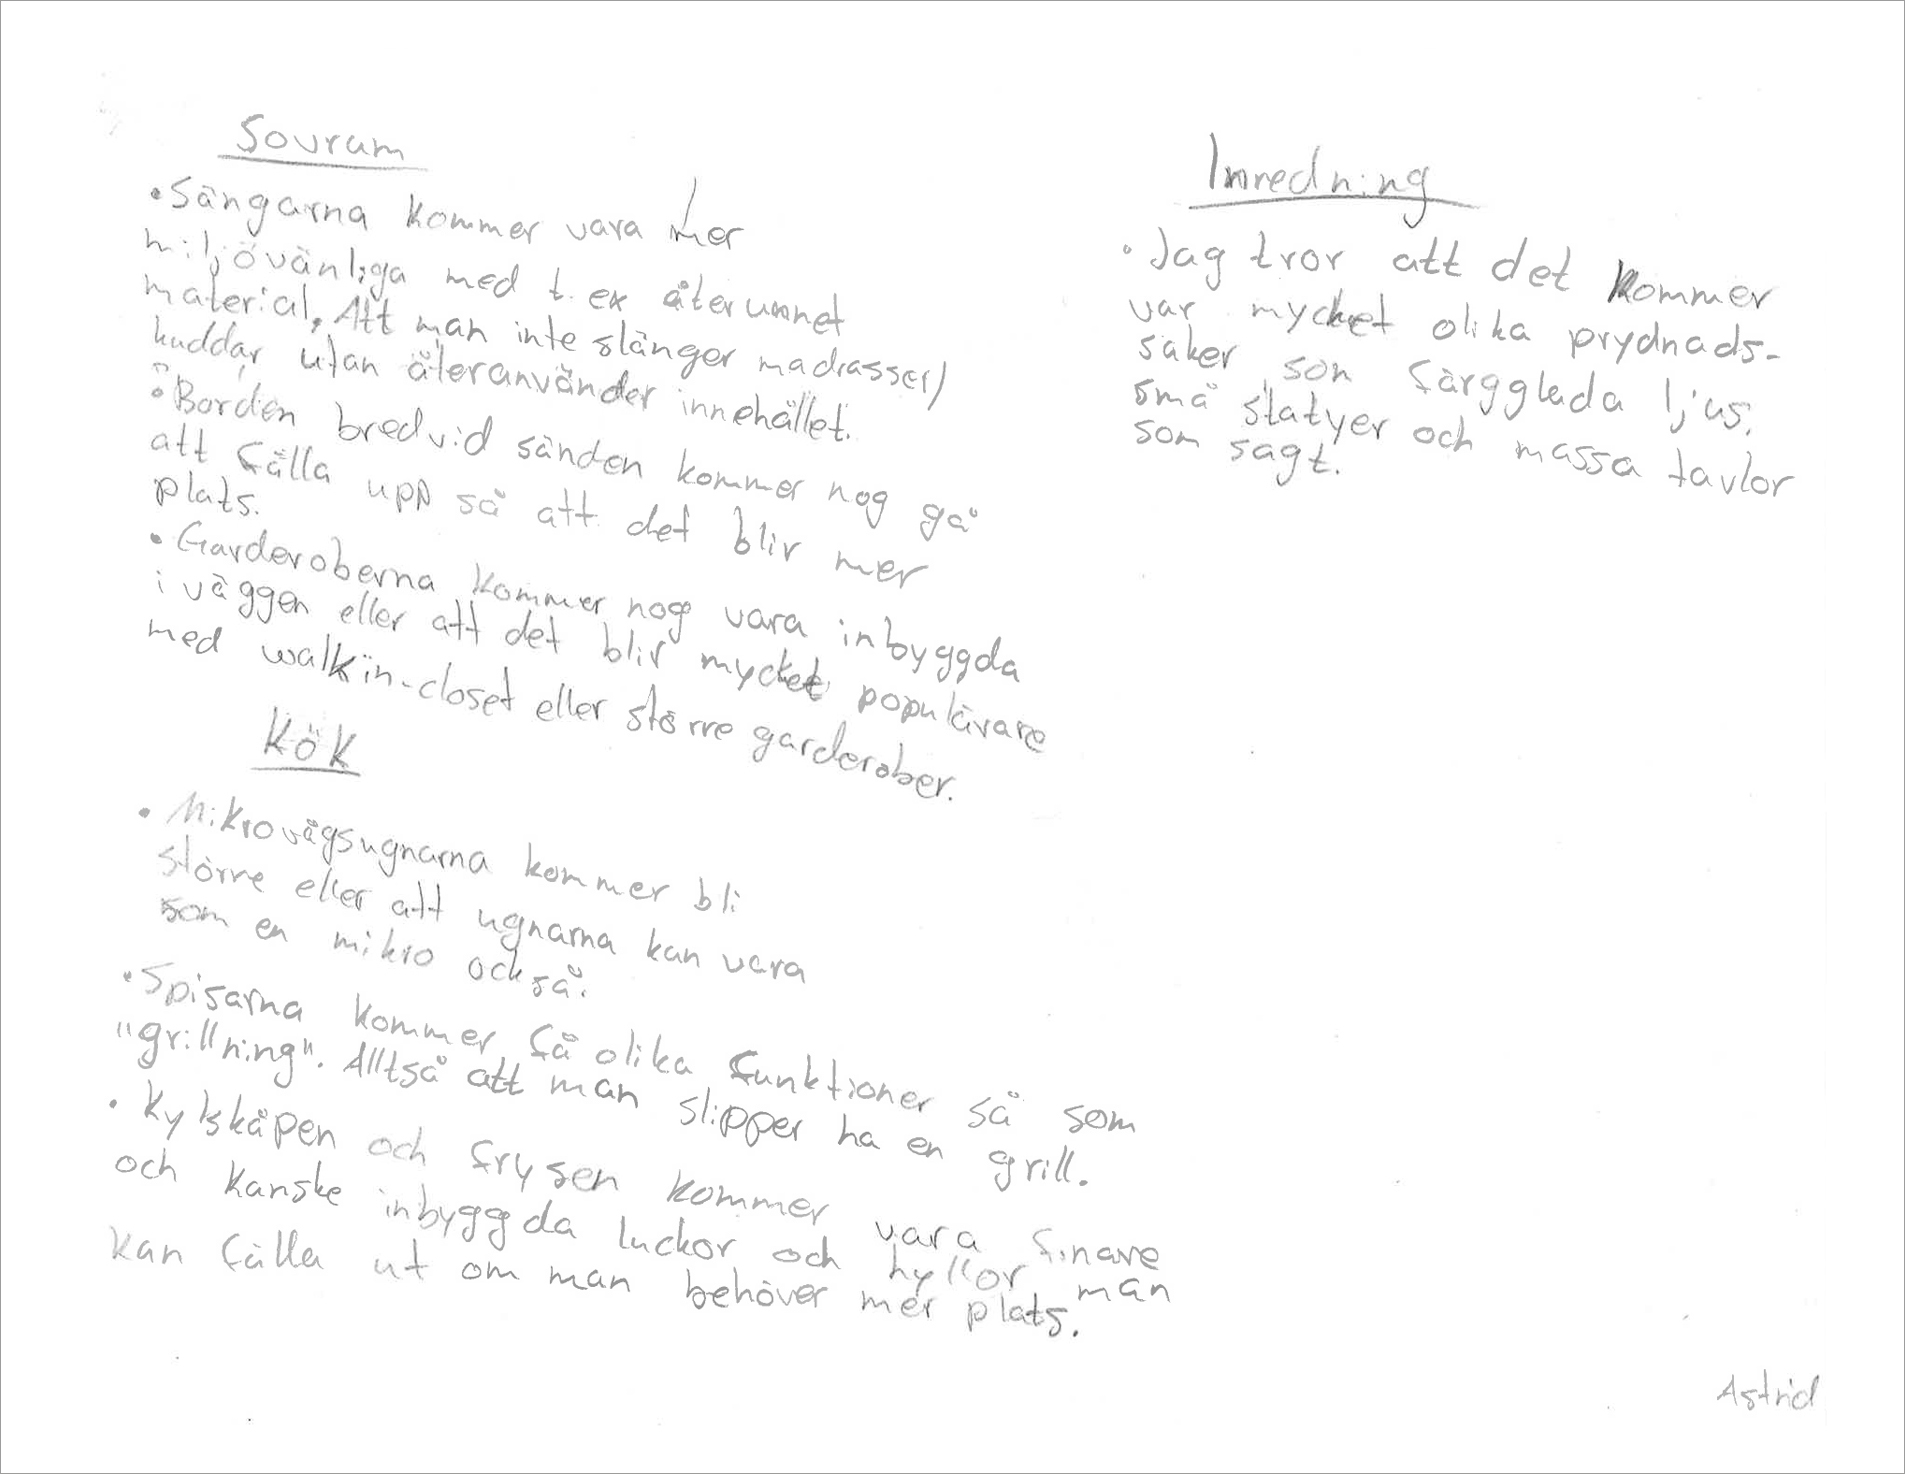 Sovrum
• Sängarna kommer vara mer
miljövänliga med t.ex återunnet
material. Att man inte slänger madrasser/
kuddar utan återanvänder innehållet.
• Borden bredvid sänden kommer nog gå
att fälla upp så att det blir mer
plats.
• Garderoberna kommer nog vara inbyggda
i väggen eller att det blir mycket populärare
med walkin-closet eller större garderober.
Kök
• Mikrovågsugnarna kommer bli
större eller att ugnarna kan vara
som en mikro också.
• Spisarna kommer få olika funktioner så som
"grillning". Alltså att man slipper ha en grill.
• Kylskåpen och frysen kommer vara finare
och kanske inbyggda luckor och hyllor man
kan fälla ut om man behöver mer plats.
Inredning
• Jag tror att det kommer
var mycket olika prydnads-
saker som färgglada ljus,
små statyer och massa tavlor
som sagt.
Astrid